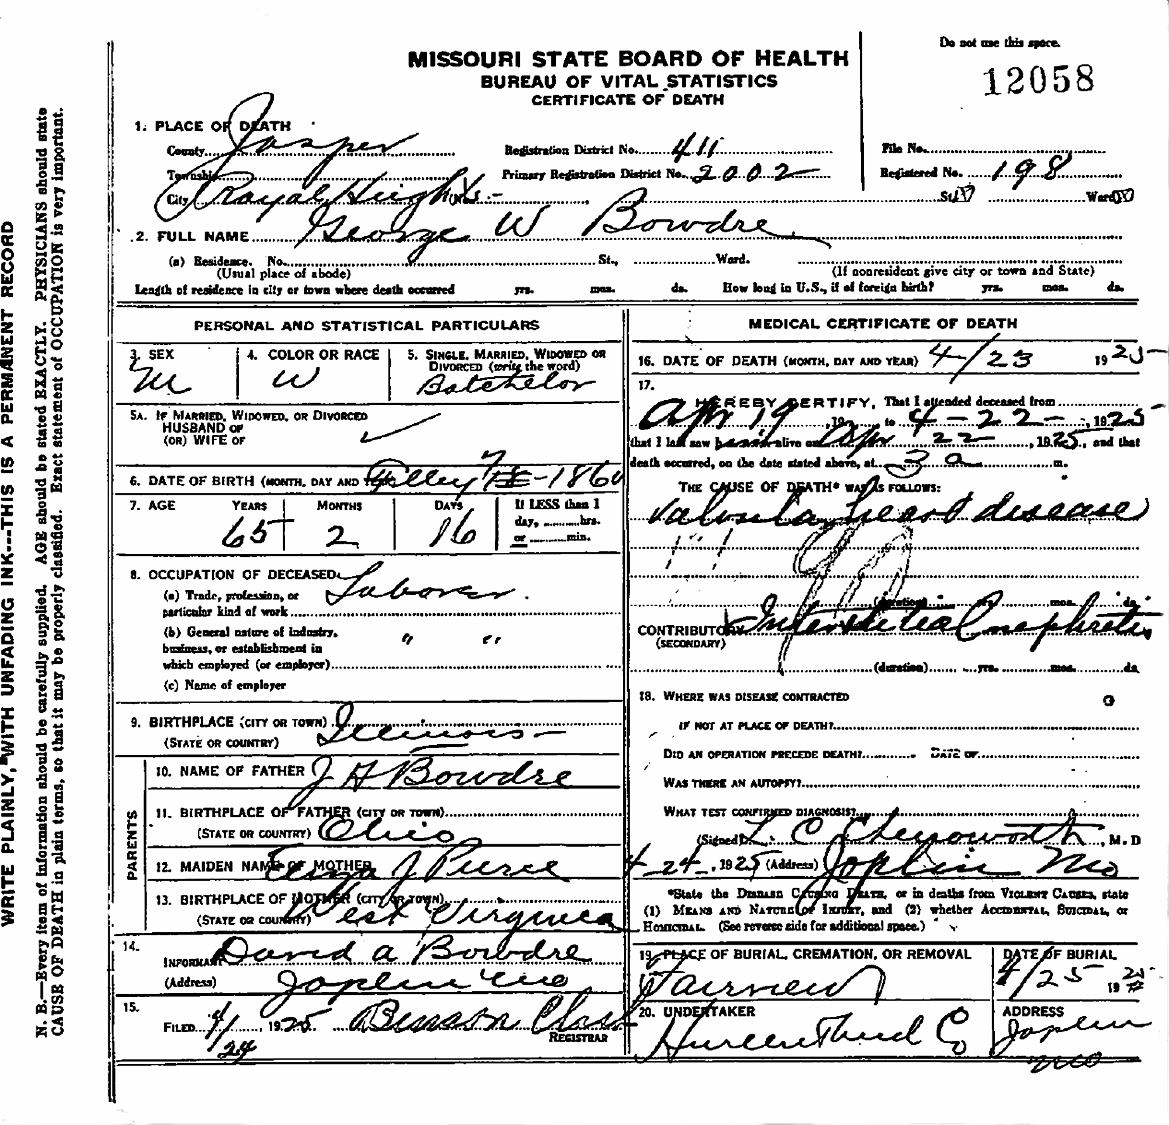 Do not use this space.
MISSOURI STATE BOARD OF HEALTH
BUREAU OF VITAL STATISTICS
CERTIFICATE OF DEATH
12058
1. PLACE OF DEATH
County Jasper Registration District No. 411 File No.
Township Primary Registration District No. 2002 Registered No. 198
City Royal Heights St. Ward
2. FULL NAME George W Bowdre
(a) Residence. No. St., Ward.
(Usual place of abode) (If nonresident give city or town and State)
Length of residence in city or town where death occurred yrs. mos. ds. How long in U.S., if of foreign birth? yrs. mos. ds.
PERSONAL AND STATISTICAL PARTICULARS
3. SEX 4. COLOR OR RACE 5. SINGLE, MARRIED, WIDOWED OR DIVORCED (write the word)
M W Batchelor
5A. IF MARRIED, WIDOWED, OR DIVORCED
HUSBAND OF
(OR) WIFE OF
6. DATE OF BIRTH (MONTH, DAY AND 7 1860
7. AGE YEARS MONTHS DAYS If LESS than 1
day, hrs.
or min.
65 2 16
8. OCCUPATION OF DECEASED
(a) Trade, profession, or
particular kind of work Laborer.
(b) General nature of industry,
business, or establishment in
which employed (or employer) " "
(c) Name of employer
9. BIRTHPLACE (CITY OR TOWN)
(STATE OR COUNTRY) Illinois
PARENTS
10. NAME OF FATHER J H Bowdre
11. BIRTHPLACE OF FATHER (CITY OR TOWN)
(STATE OR COUNTRY) Ohio
12. MAIDEN NAME OF MOTHER J Pierce
13. BIRTHPLACE OF MOTHER (CITY OR TOWN)
(STATE OR COUNTRY) West Virginia
14.
INFORMANT David A Bowdre
(Address) Joplin Mo
15.
FILED 4/24, 1925 Benson Clark
REGISTRAR
MEDICAL CERTIFICATE OF DEATH
16. DATE OF DEATH (MONTH, DAY AND YEAR) 4/23 1925
17.
I HEREBY CERTIFY, That I attended deceased from
Apr 19, 19 to 4-22-, 1925
that I last saw alive on Apr 22, 1925, and that
death occurred, on the date stated above, at 3 a m.
THE CAUSE OF DEATH* WAS AS FOLLOWS:
Valvular heart disease
(duration) yrs. mos. ds.
CONTRIBUTORY Interstitial nephritis
(SECONDARY)
(duration) yrs. mos. ds.
18. WHERE WAS DISEASE CONTRACTED
IF NOT AT PLACE OF DEATH?
DID AN OPERATION PRECEDE DEATH? DATE OF
WAS THERE AN AUTOPSY?
WHAT TEST CONFIRMED DIAGNOSIS?
(Signed) L. C. Chenoworth, M. D
4-24-, 1925 (Address) Joplin Mo
*State the DISEASE CAUSING DEATH, or in deaths from VIOLENT CAUSES, state
(1) MEANS AND NATURE OF INJURY, and (2) whether ACCIDENTAL, SUICIDAL, or
HOMICIDAL. (See reverse side for additional space.)
19. PLACE OF BURIAL, CREMATION, OR REMOVAL DATE OF BURIAL
Fairview 4/25 1925
20. UNDERTAKER ADDRESS
Co Joplin Mo
WRITE PLAINLY, WITH UNFADING INK---THIS IS A PERMANENT RECORD
N. B.—Every item of information should be carefully supplied. AGE should be stated EXACTLY. PHYSICIANS should state
CAUSE OF DEATH in plain terms, so that it may be properly classified. Exact statement of OCCUPATION is very important.